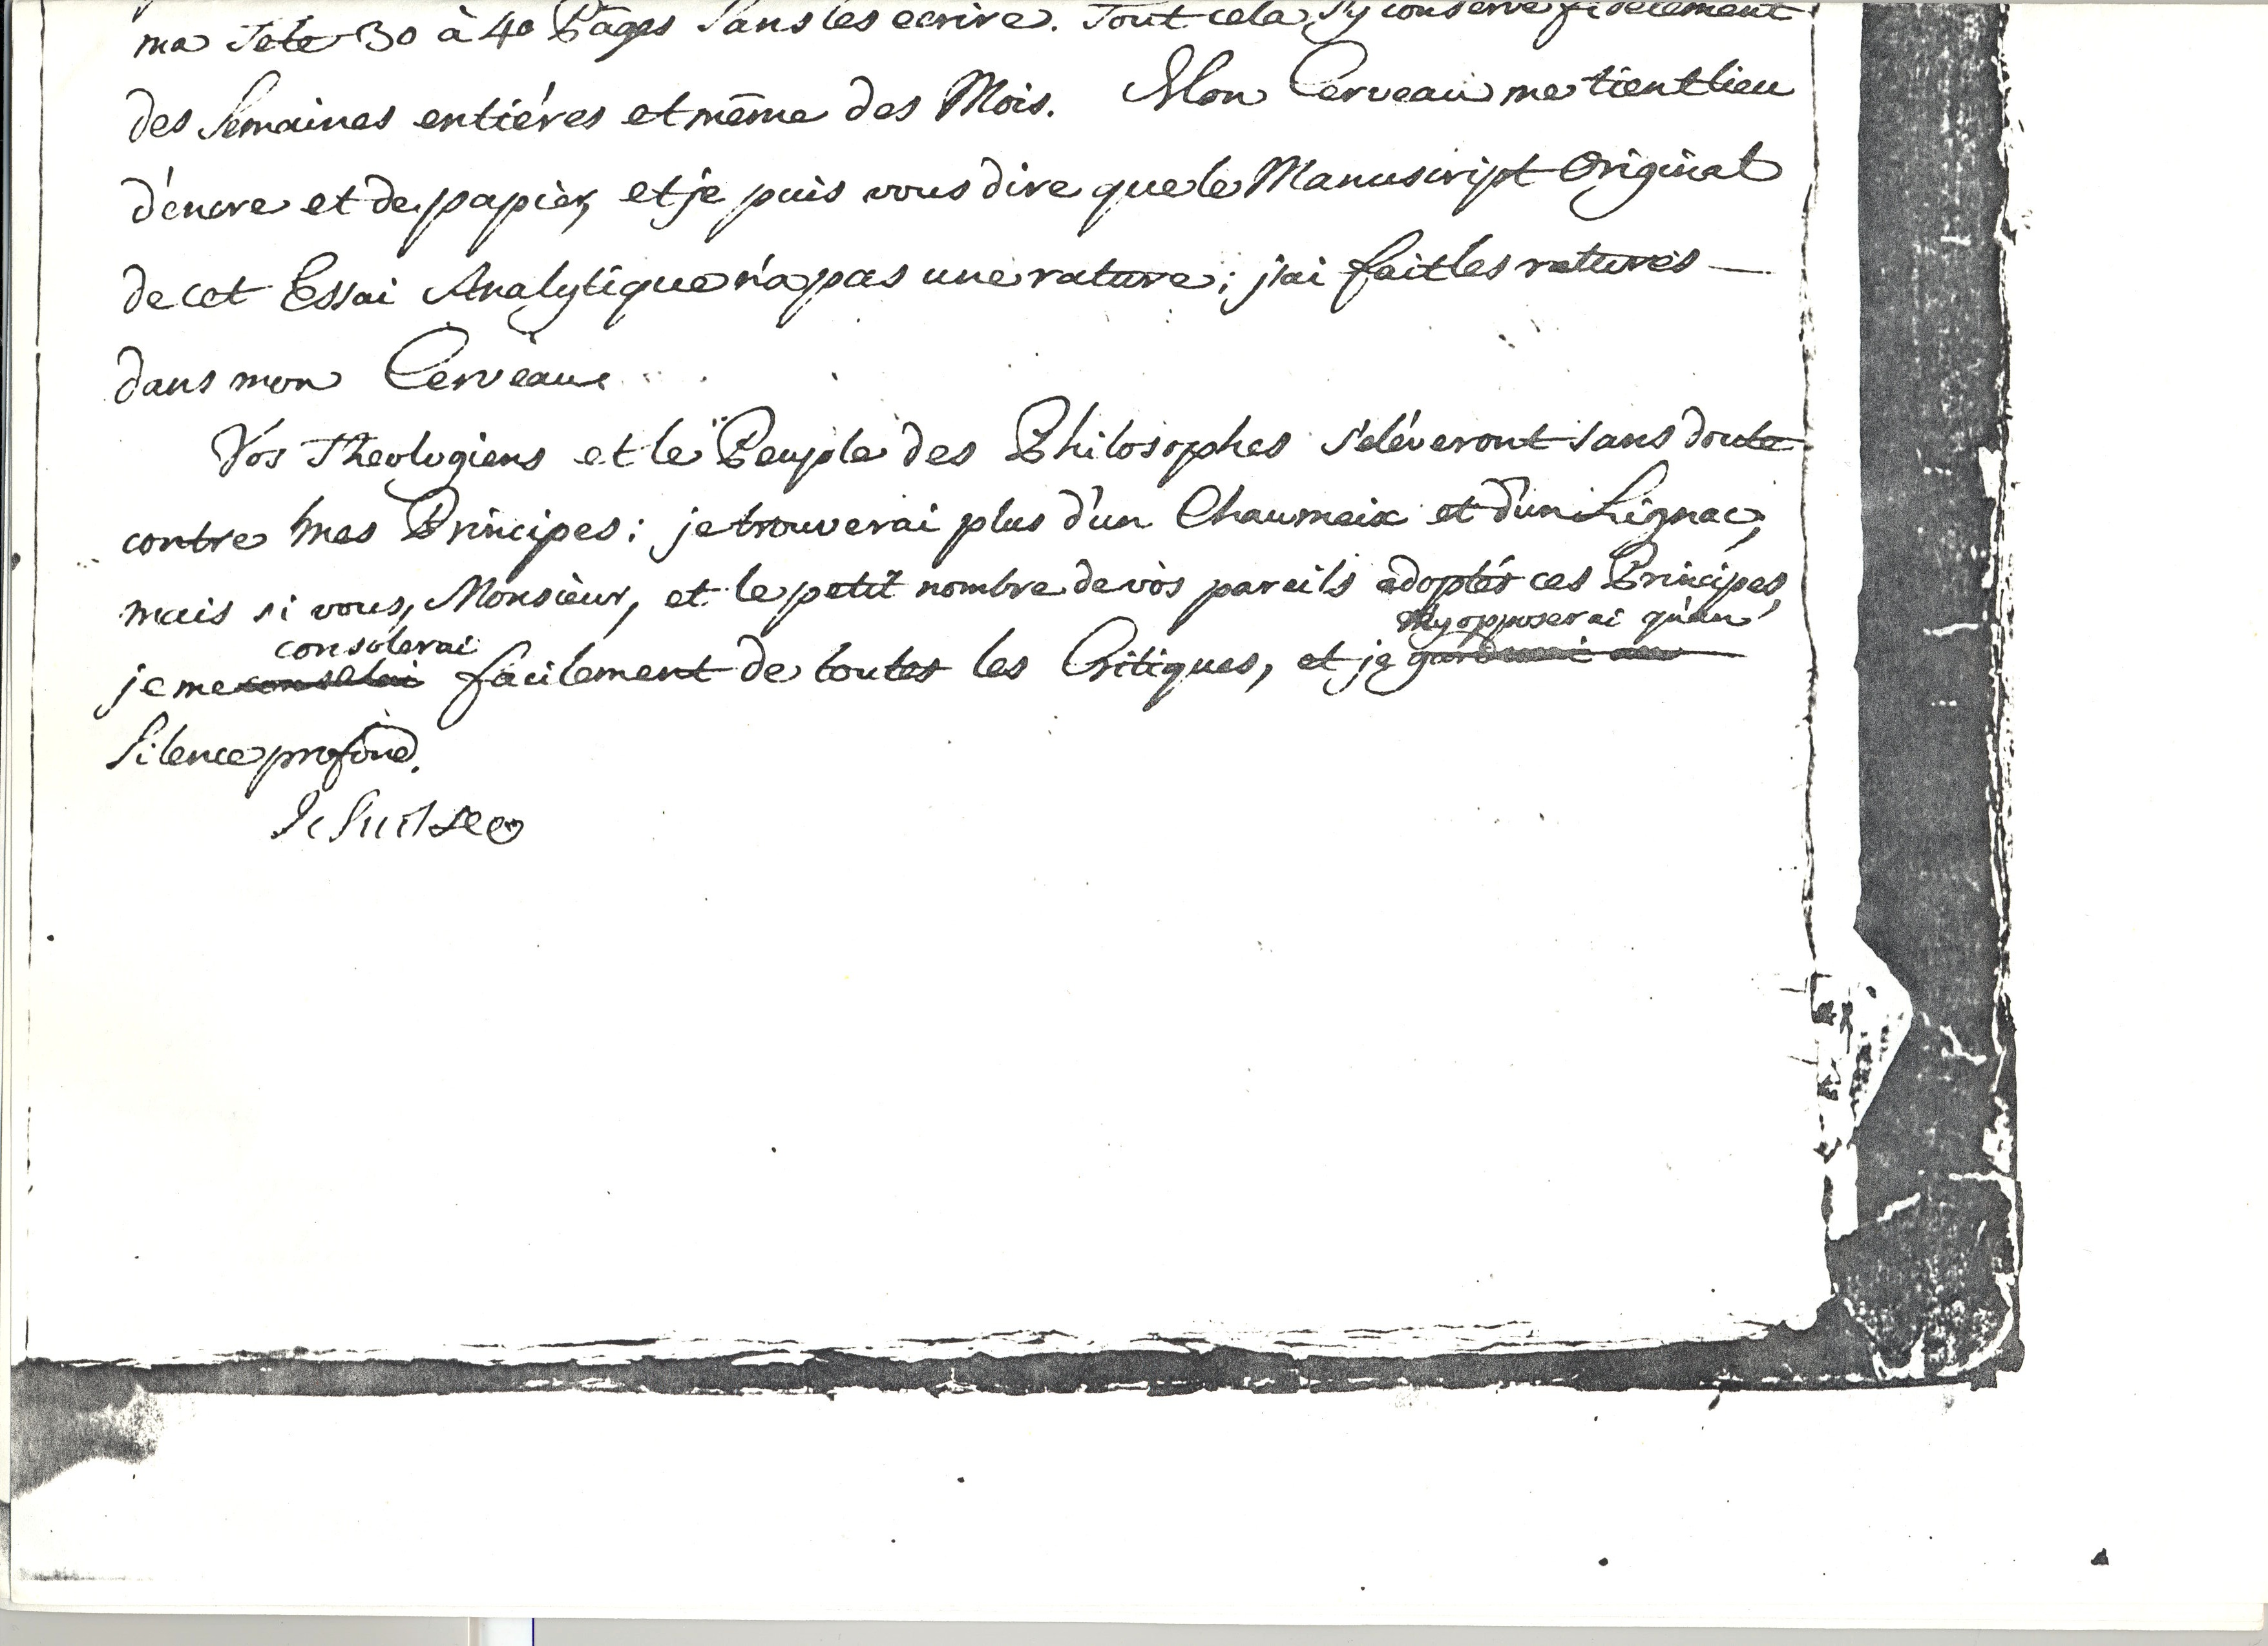 ma Tete 30 à 40 Pages sans les ecrire. Tout cela s'y conserve fidelement
des Semaines entiéres et même des Mois. Mon Cerveau me tient lieu
d'encre et de papier, et je puis vous dire que le Manuscript Original
de cet Essai Analytique n'a pas une rature; j'ai fait les ratures —
dans mon Cerveau
Vos Theologiens et le Peuple des Philosophes s'eléveront sans doute
contre mes Principes: je trouverai plus d'un Chaumeix et d'un Lignac,
mais si vous, Monsieur, et le petit nombre de vos pareils adoptés ces Principes,
consolerai n'y opposerai qu'un
je me facilement de toutes les Critiques, et je garderai un
Silence profond.
Je Suis &c